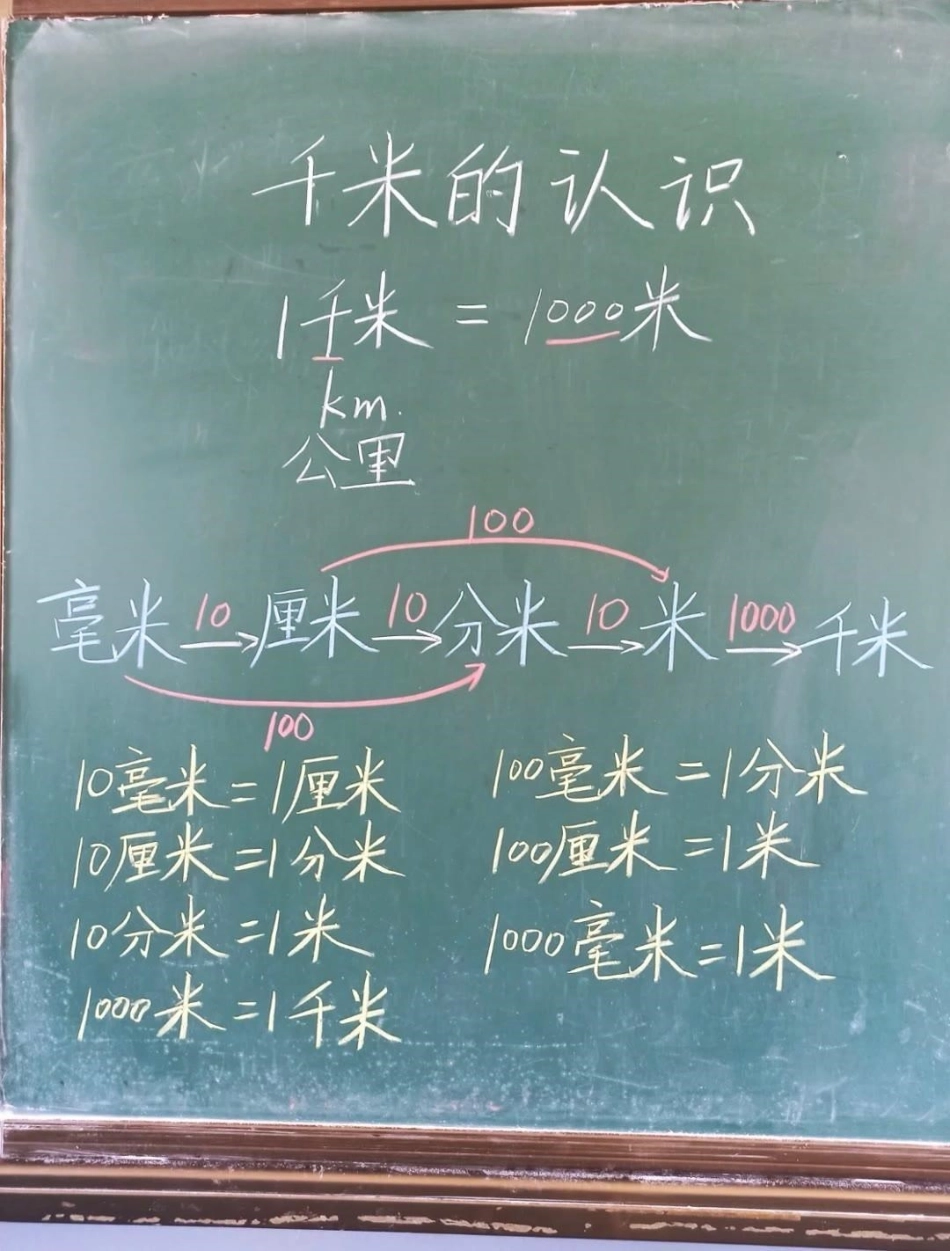 千米的认识
1千米 = 1000米
km.
公里
100
毫米 10 厘米 10 分米 10 米 1000 千米
100
10毫米=1厘米 100毫米=1分米
10厘米=1分米 100厘米=1米
10分米=1米 1000毫米=1米
1000米=1千米